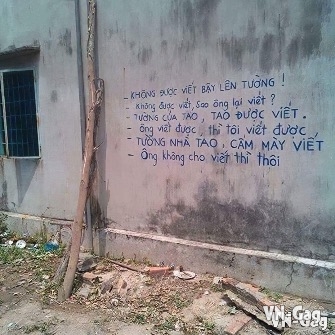 - KHÔNG ĐƯỢC VIẾT BẬY LÊN TƯỜNG !
- Không được viết, Sao ông lại viết ?
- TƯỜNG CỦA TAO, TAO ĐƯỢC VIẾT.
- ông viết được, thì tôi viết được
- TƯỜNG NHÀ TAO, CẤM MÀY VIẾT
- Ông không cho viết thì thôi
VN-Gag